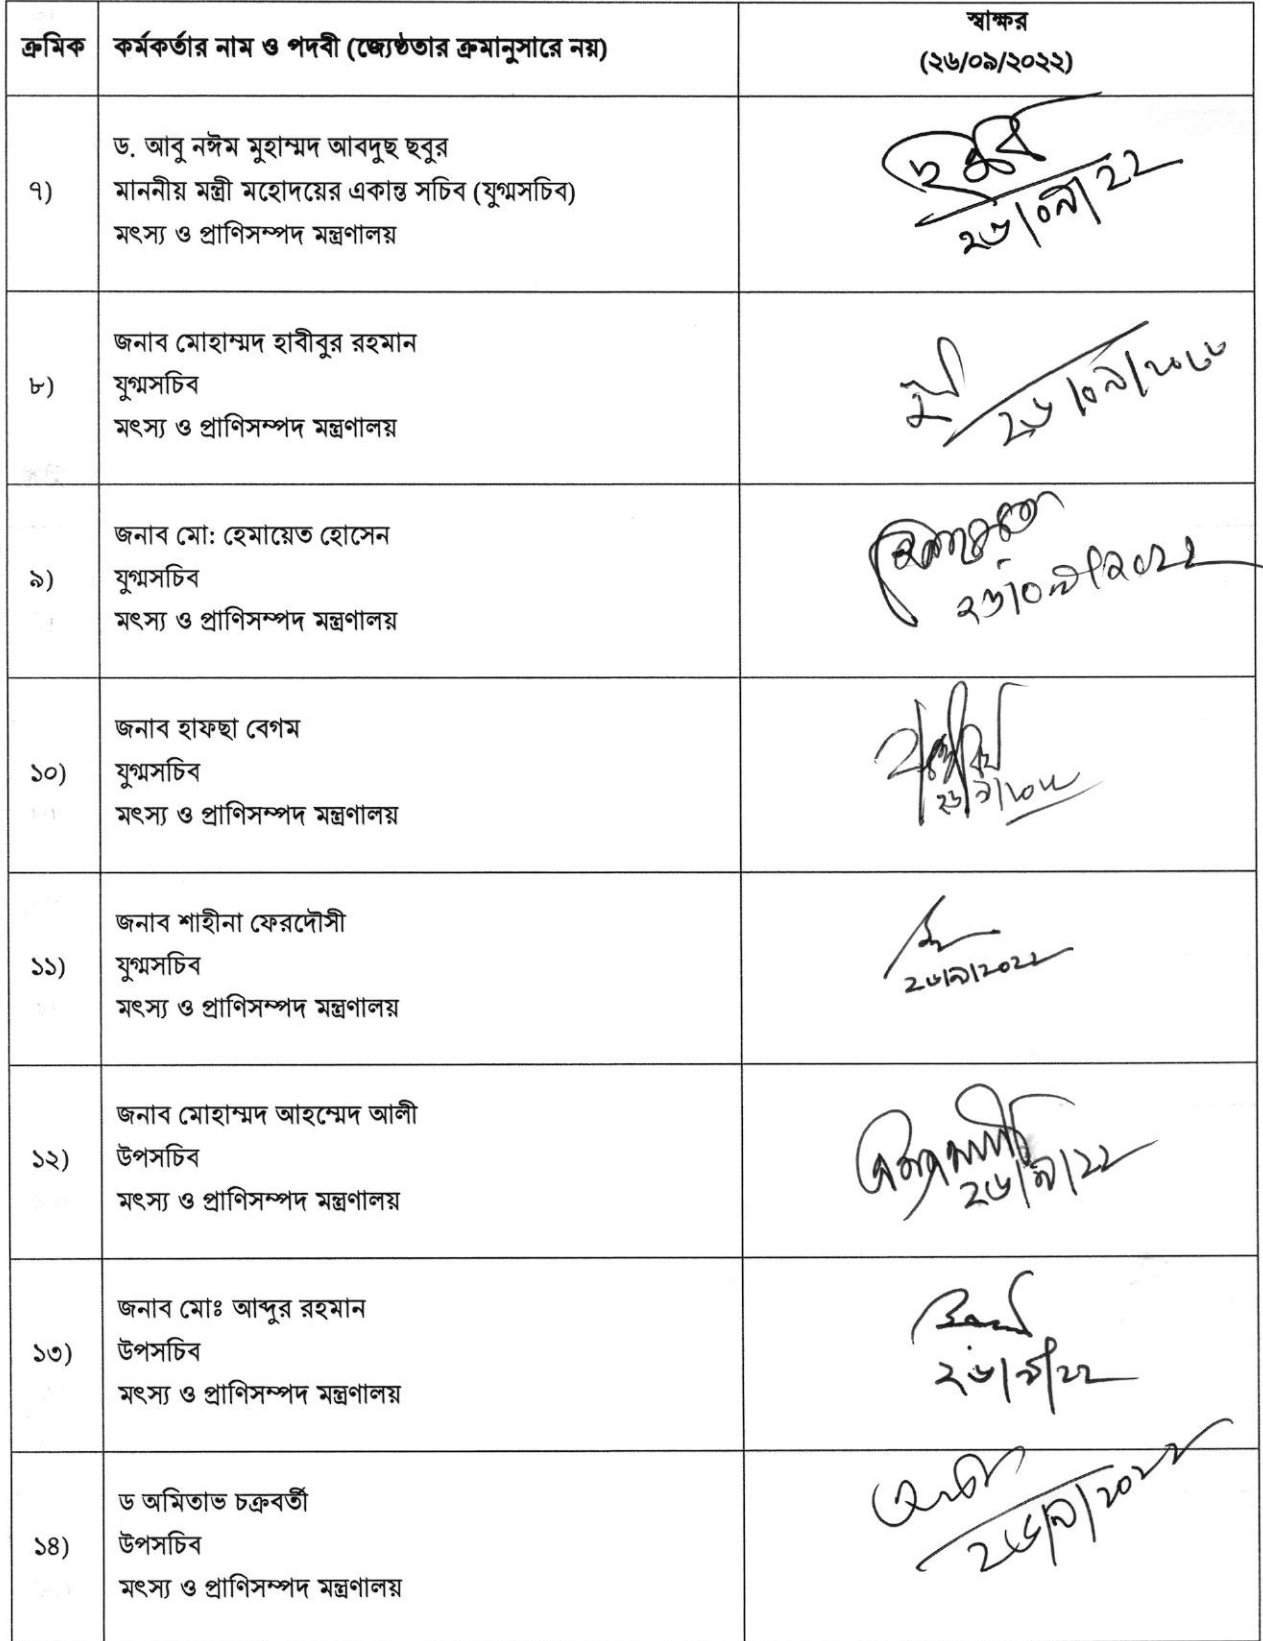 ক্রমিক কর্মকর্তার নাম ও পদবী (জ্যেষ্ঠতার ক্রমানুসারে নয়) স্বাক্ষর
(২৬/০৯/২০২২)
ড. আবু নঈম মুহাম্মদ আবদুছ ছবুর
৭) মাননীয় মন্ত্রী মহোদয়ের একান্ত সচিব (যুগ্মসচিব)
মৎস্য ও প্রাণিসম্পদ মন্ত্রণালয়
ছবুর
২৬/০৯/২২
জনাব মোহাম্মদ হাবীবুর রহমান
৮) যুগ্মসচিব
মৎস্য ও প্রাণিসম্পদ মন্ত্রণালয়
২৬/০৯/২০২২
জনাব মো: হেমায়েত হোসেন
৯) যুগ্মসচিব
মৎস্য ও প্রাণিসম্পদ মন্ত্রণালয়
২৬/০৯/২০২২
জনাব হাফছা বেগম
১০) যুগ্মসচিব
মৎস্য ও প্রাণিসম্পদ মন্ত্রণালয়
২৬/৯/২০২২
জনাব শাহীনা ফেরদৌসী
১১) যুগ্মসচিব
মৎস্য ও প্রাণিসম্পদ মন্ত্রণালয়
২৬/৯/২০২২
জনাব মোহাম্মদ আহম্মেদ আলী
১২) উপসচিব
মৎস্য ও প্রাণিসম্পদ মন্ত্রণালয়
২৬/৯/২২
জনাব মোঃ আব্দুর রহমান
১৩) উপসচিব
মৎস্য ও প্রাণিসম্পদ মন্ত্রণালয়
২৬/৯/২২
ড অমিতাভ চক্রবর্তী
১৪) উপসচিব
মৎস্য ও প্রাণিসম্পদ মন্ত্রণালয়
২৬/৯/২০২২